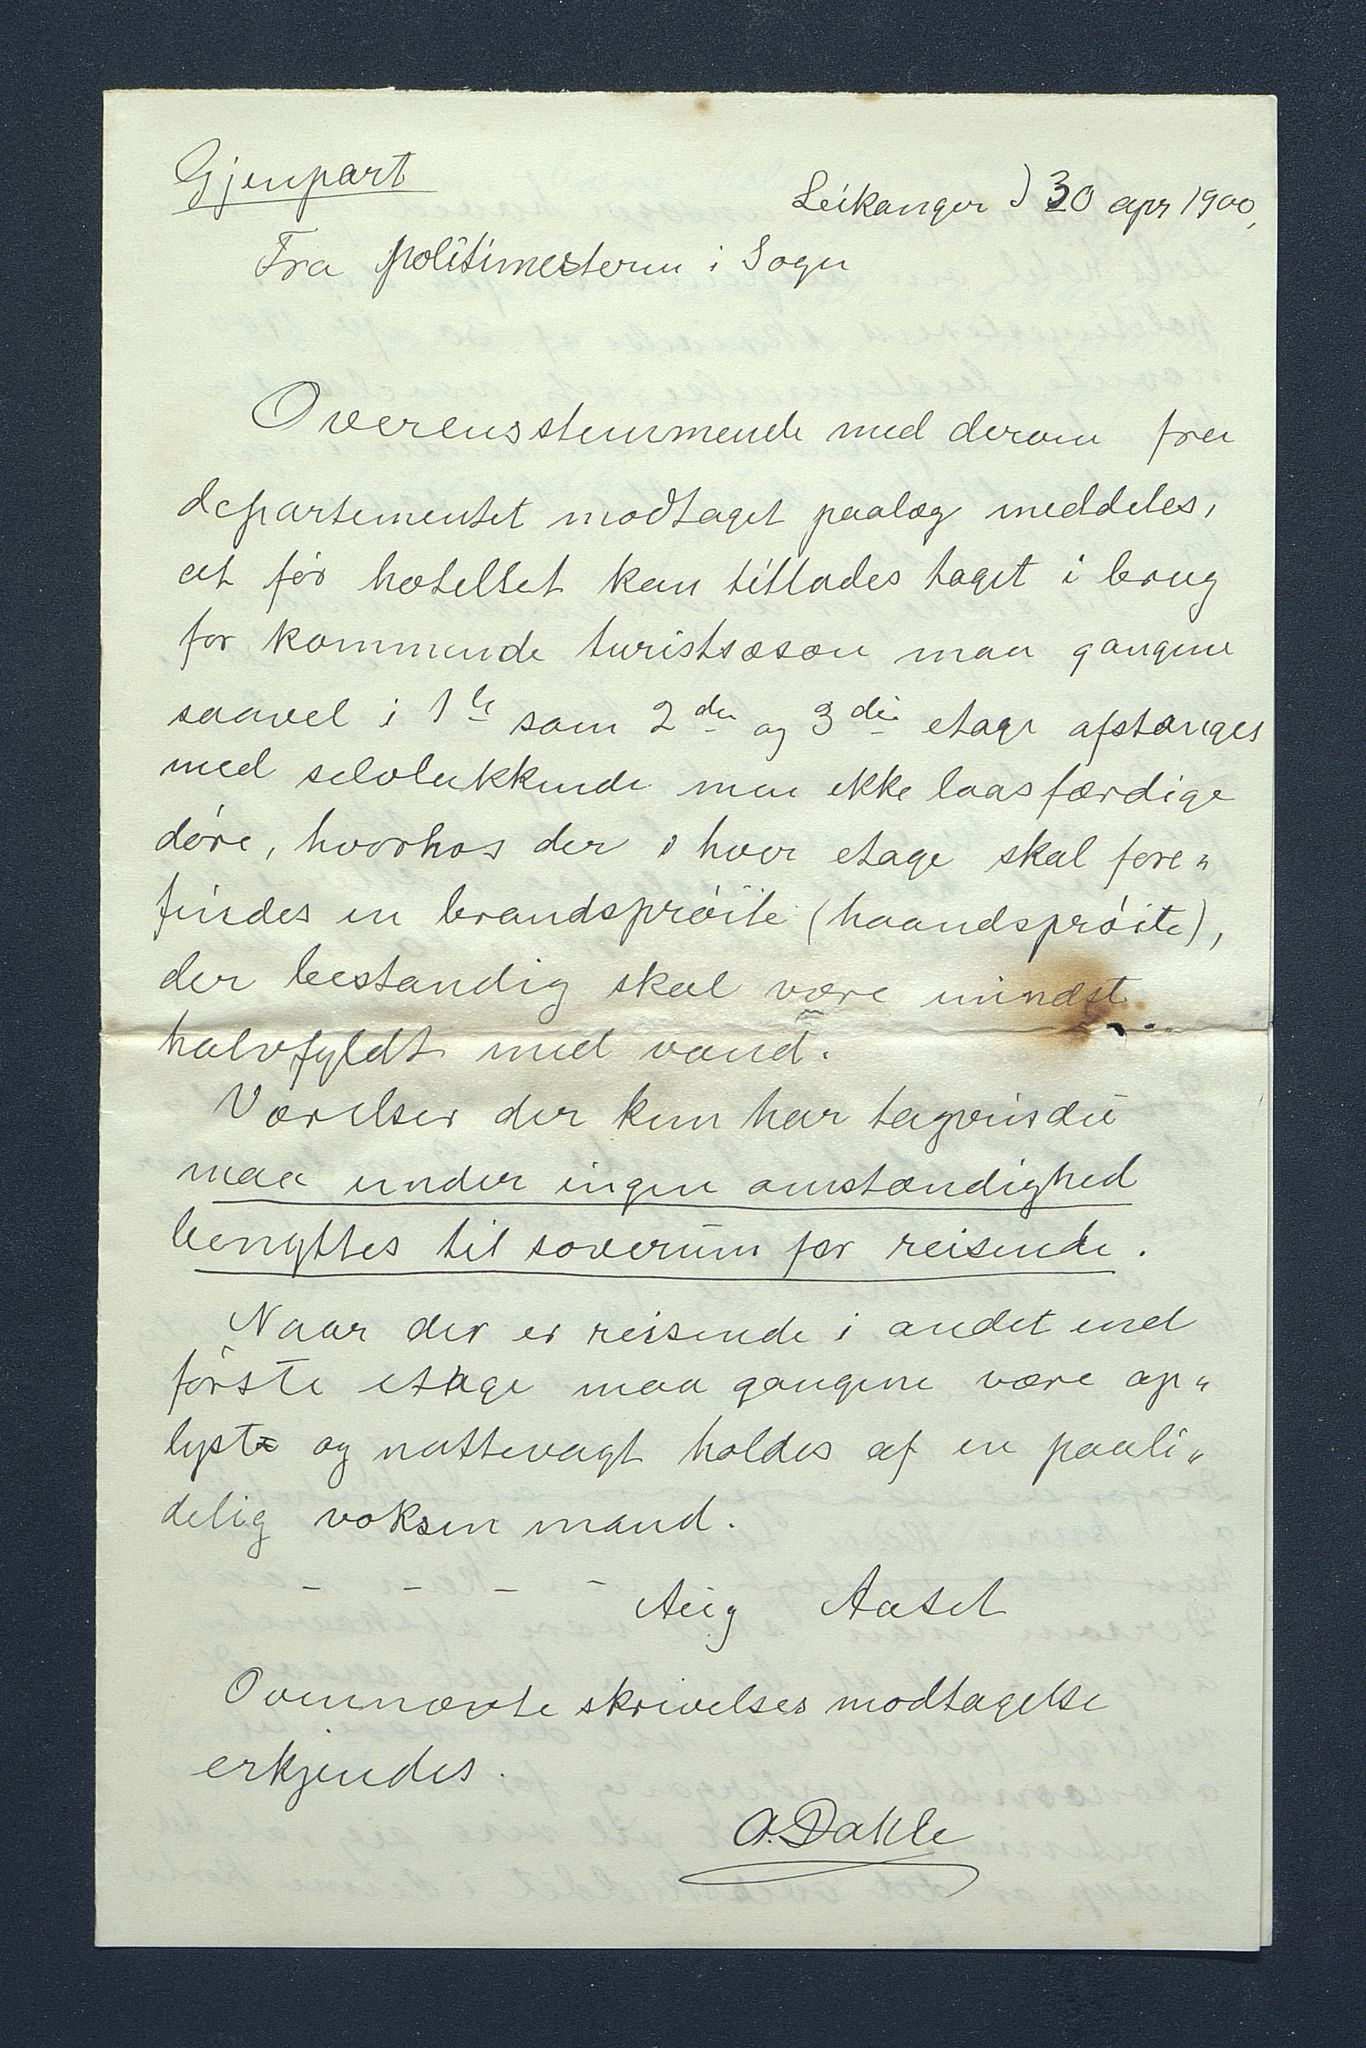 Gjenpart
Leikanger d 30 apr 1900,
Fra politimesteren i Sogn
Overensstemmende med derom fra
departementet modtaget paalæg meddeles,
at før hotellet kan tillades taget i brug
for kommende turistsæson maa gangene
saavel i 1ste som 2den og 3die etage afstænges
med selvlukkende men ikke laasfærdige
døre, hvorhos der i hver etage skal fore„
findes en brandsprøite (haandsprøite),
der bestandig skal være mindst
halvfyldt med vand.
Værelser der kun har tagvindu
maa under ingen omstændighed
benyttes til soverum for reisende.
Naar der er reisende i andet end
første etage maa gangene være op„
lyst og nattevagt holdes af en paali„
delig voksen mand.
– – – –
Aug Aaset
Ovennævnte skrivelses modtagelse
erkjendes.
O. Dahle